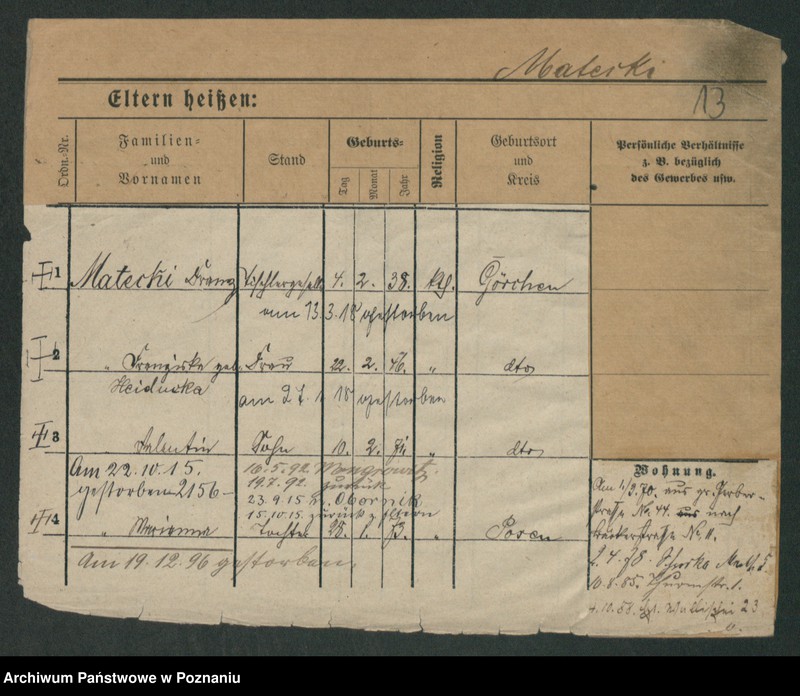 Matecki
13
Eltern heißen:
Ordn.-Nr.
Familien-
und
Vornamen
Stand
Geburts-
Tag
Monat
Jahr
Religion
Geburtsort
und
Kreis
Persönliche Verhältnisse
z. B. bezüglich
des Gewerbes usw.
1 Matecki Franz Tischlergesell 4. 2. 38. kth. Görchen
am 13.3.18 gestorben
2 " Franziska geb. Frau 22. 2. 46. " dto
Heiduska
am 27. 1. 18 gestorben
3 " Valentin Sohn 10. 2. 71. " dto
Am 22.10.15.
gestorben 2156
16.5.92. Wongrowitz
19.7.92. zurück
23.9.15 Obornik
15.10.15. zurück z. Eltern
4 " Marianna Tochter 28. 1. 73. " Posen
Am 19.12.96 gestorben.
Wohnung.
Am 1/3.70. aus gr. Gerber-
straße No. 44. aus nach
Bäckerstraße No. 11.
2.4.78.
10.8.85. Thurmstr. 1.
4.10.88. Wallischei 23
Archiwum Państwowe w Poznaniu